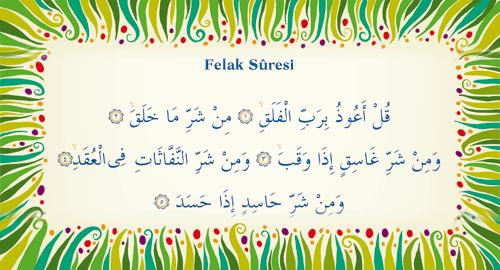 Felak Sûresi
قُلْ أَعُوذُ بِرَبِّ الْفَلَقِۙ ﴿١﴾ مِنْ شَرِّ مَا خَلَقَۙ ﴿٢﴾
وَمِنْ شَرِّ غَاسِقٍ إِذَا وَقَبَۙ ﴿٣﴾ وَمِنْ شَرِّ النَّفَّاثَاتِ فِى الْعُقَدِۙ ﴿٤﴾
وَمِنْ شَرِّ حَاسِدٍ إِذَا حَسَدَ ﴿٥﴾